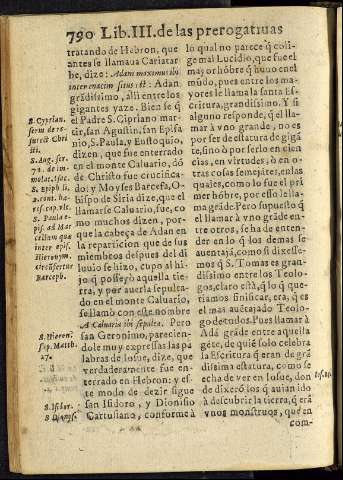 790 Lib. III. de las prerogatiuas
tratando de Hebron, que
antes se llamaua Cariatar
be, dize: Adam maximus ibi
inter enacim situs est: Adan
grãdissimo, alli entre los
gigantes yaze. Bien se q̃
el Padre S. Cypriano mar-
tir, san Agustin, san Epifa
nio, S. Paula, y Eustoquio,
dizen, que fue enterrado
en el monte Caluario, dõ
de Christo fue crucifica-
do: y Moyses Barcefa, O-
bispo de Siria dize, que el
llamarse Caluario, fue, co
mo muchos dizen, por-
que la cabeça de Adan en
la reparticion que de sus
miembros despues del di
luuio se hizo, cupo al hi-
jo q̃ posseîo aquella tie-
rra, y por auerla sepulta-
do en el monte Caluario,
se llamò con este nombre
A Caluaria ibi sepulta. Pero
san Geronimo, parecien-
dole muy expressas las pa
labras de Iosue, dize, que
verdaderamente fue en-
terrado en Hebron: y es-
te modo de dezir sigue
san Isidoro, y Dionisio
Cartusiano, conforme à
S. Cyprian.
serm de re-
surect Chri
sti.
S. Aug. ser.
71. de im-
molat. Isac.
S. Epiph li.
2. cont. hæ-
res. cap. vlt.
S. Paula e-
pis. ad Mar
cellam que
inter epis.
Hieronym.
Barceph.
S. Hieron.
sup. Matth.
27.
S. Isidor.
S Dionys.
lo qual no parece q̃ coli-
ge mal Lucidio, que fue el
mayor hõbre q̃ huuo en el
mũdo, pues entre los ma-
yores le llama la santa Es-
critura, grandissimo. Y si
alguno responde, q̃ el lla-
mar à vno grande, no es
por ser de estatura de gigã
te, sino ò por serlo en cien
cias, en virtudes, ò en o-
tras cosas semejãtes, en las
quales, como lo fue el pri
mer hõbre, por esso le lla-
ma grãde. Pero supuesto q̃
el llamar à vno grãde en-
tre otros, se ha de enten-
der en lo q̃ los demas se
auentajã, como si dixesse-
mos q̃ S. Tomas es gran-
dissimo entre los Teolo-
gos, claro està, q̃ lo q̃ que-
riamos sinificar, era, q̃ es
el mas auẽtajado Teolo-
go de todos. Pues llamar à
Adã grãde entre aquella
gẽte, de quiẽ solo celebra
la Escritura q̃ eran de grã
dissima estatura, como se
echa de ver en Iosue, don
de dixerõ los q̃ auian ido
à descubrir la tierra, q̃ erã
vnos monstruos, que en
com-